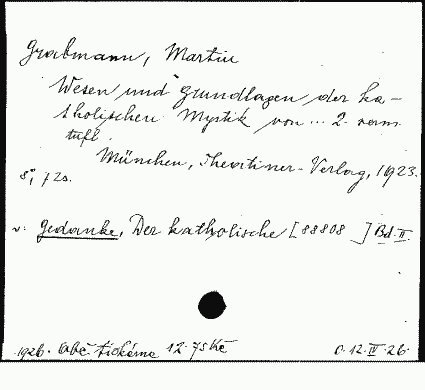 Grabmann, Martin
Wesen und Grundlagen der ka-
tholischen Mystik von ... 2. verm.
Aufl.
München, Theatiner-Verlag, 1923.
8°, 72 s.
v. Gedanke, Der katholische [88808 ] Bd. II.
1926. 12.75 Kč 0.12.IV.26.